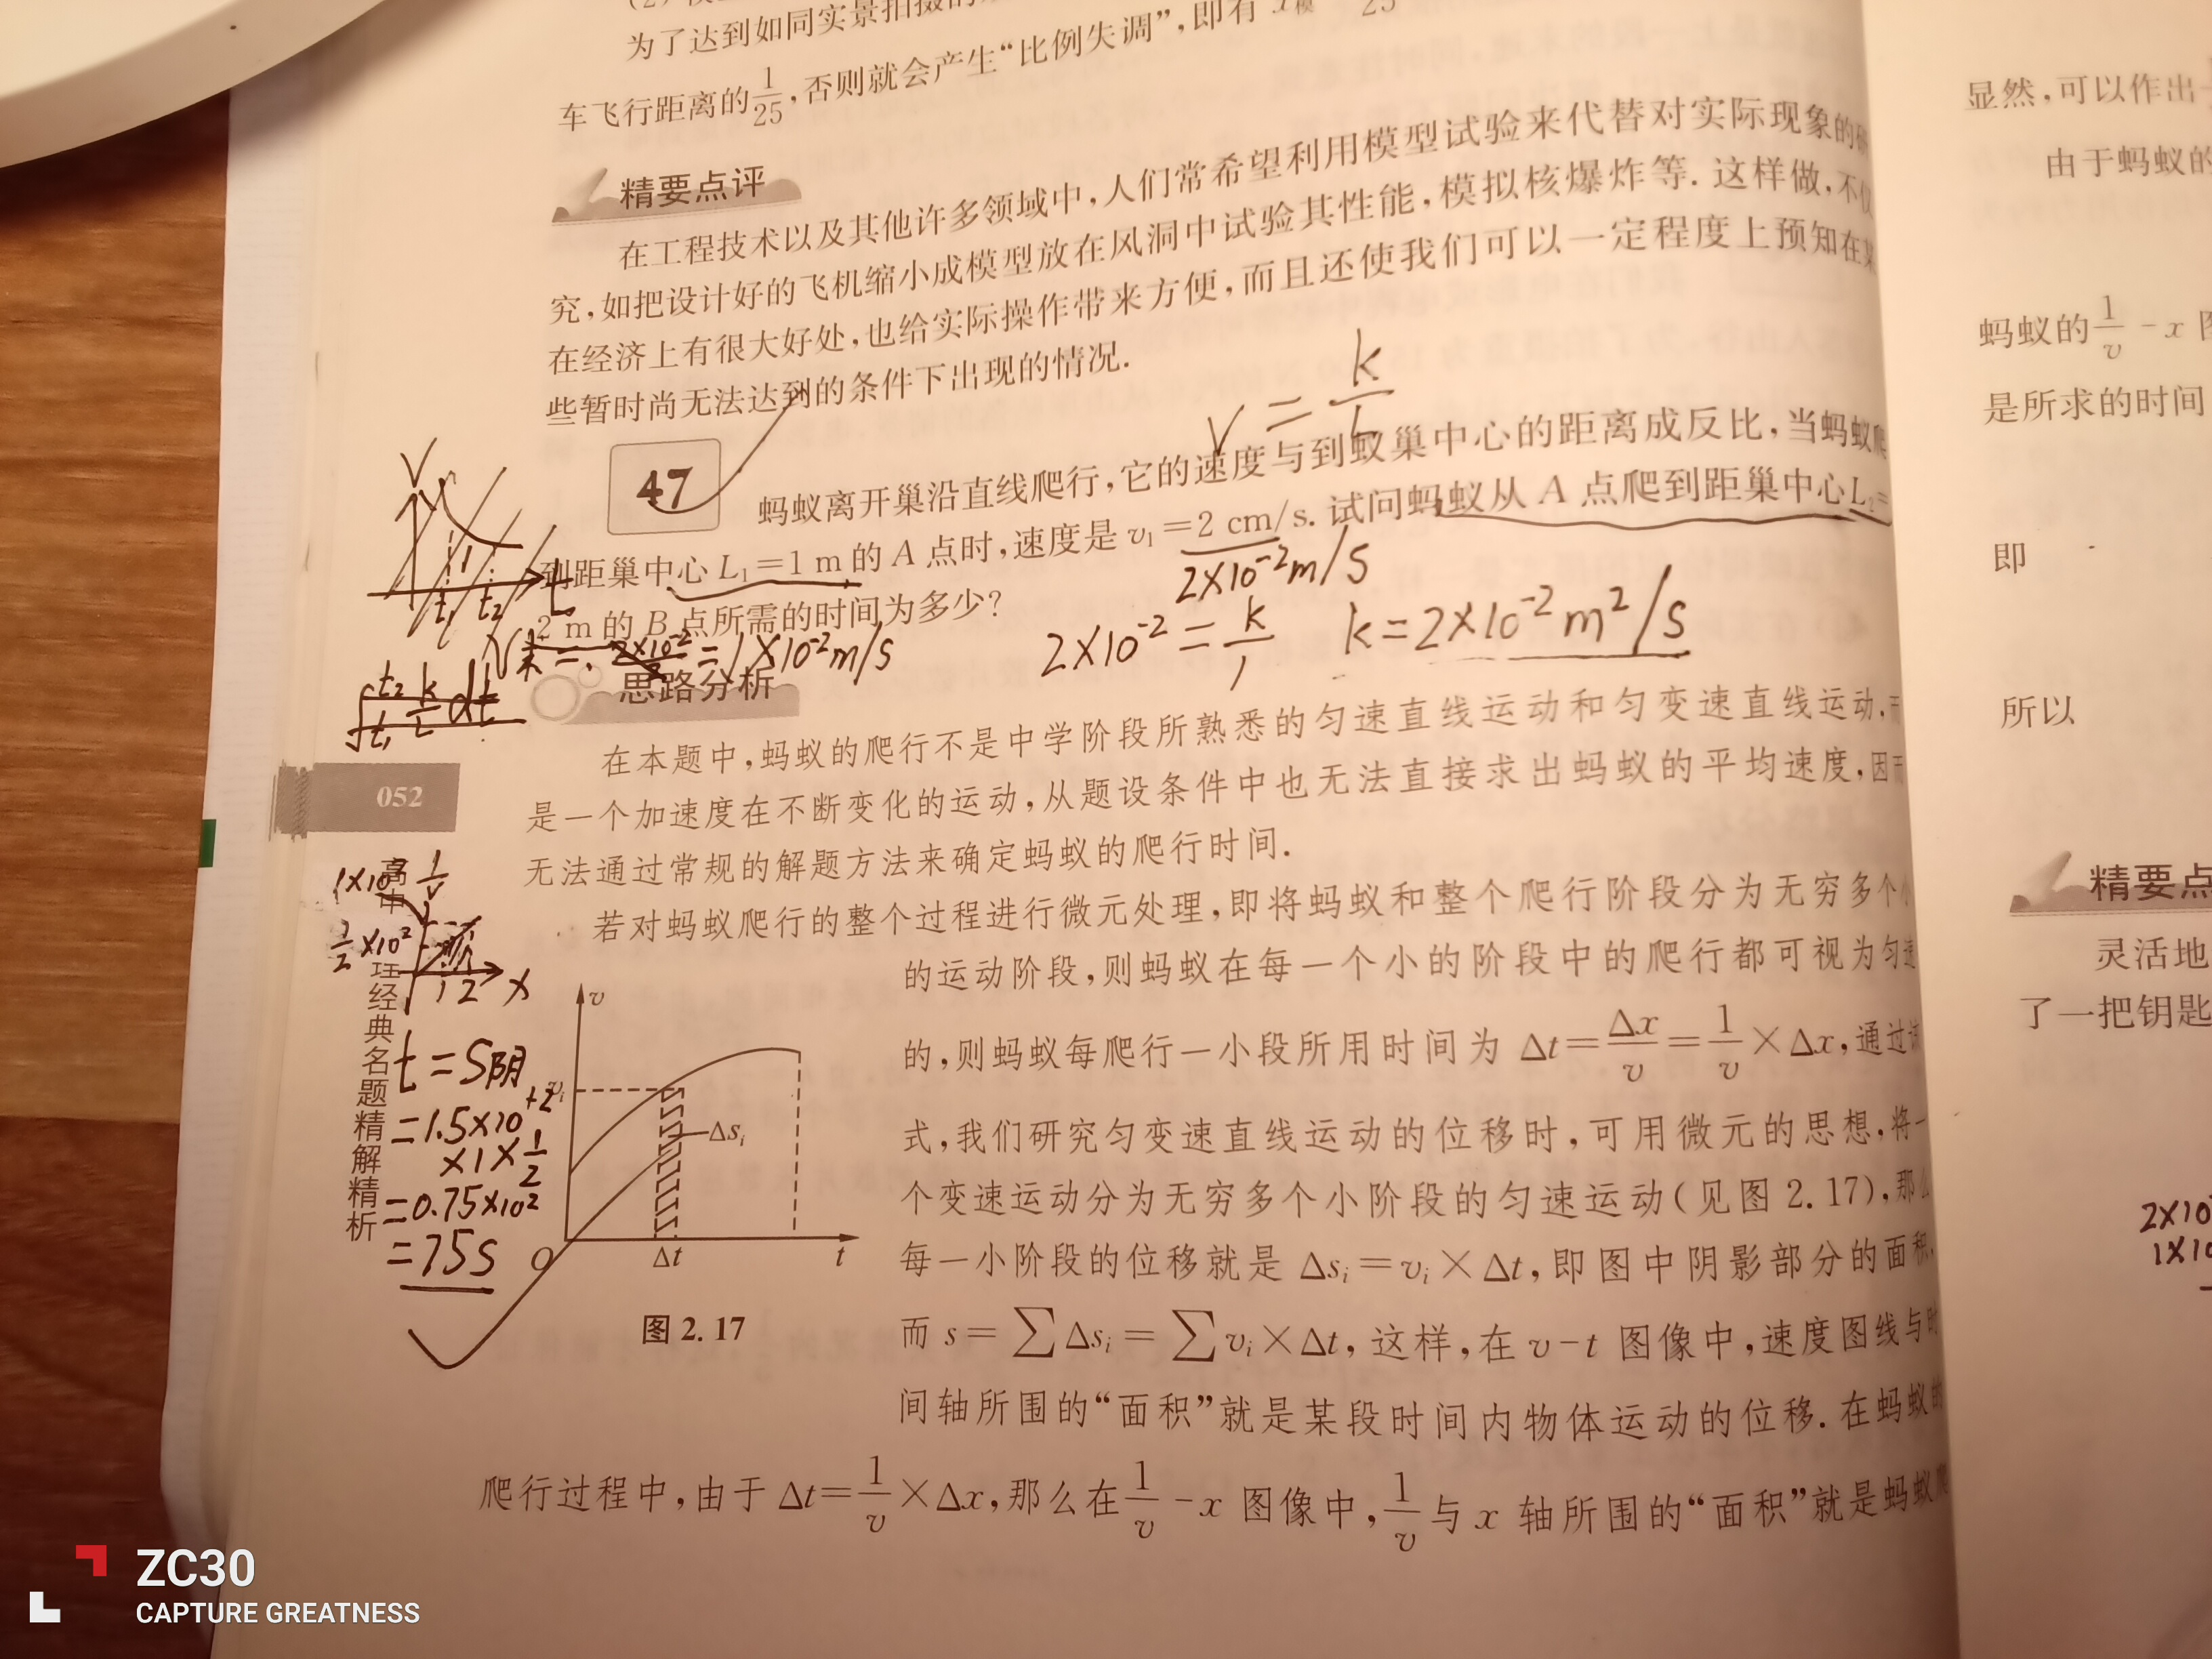 为了达到如同实景拍摄的
车飞行距离的1/25,否则就会产生“比例失调”,即有 x
精要点评
在工程技术以及其他许多领域中,人们常希望利用模型试验来代替对实际现象的
究,如把设计好的飞机缩小成模型放在风洞中试验其性能,模拟核爆炸等. 这样做,不仅
在经济上有很大好处,也给实际操作带来方便,而且还使我们可以一定程度上预知在某
些暂时尚无法达到的条件下出现的情况.
V = k/L
47 蚂蚁离开巢沿直线爬行,它的速度与到蚁巢中心的距离成反比,当蚂蚁爬
到距巢中心 L₁=1 m 的 A 点时,速度是 v₁=2 cm/s. 试问蚂蚁从 A 点爬到距巢中心 L₂=
2×10⁻²m/s
2 m 的 B 点所需的时间为多少?
V末= =1×10⁻²m/s
2×10⁻²=k/1 k=2×10⁻²m²/s
V
t₁ t₂
思路分析
在本题中,蚂蚁的爬行不是中学阶段所熟悉的匀速直线运动和匀变速直线运动,而
是一个加速度在不断变化的运动,从题设条件中也无法直接求出蚂蚁的平均速度,因而
无法通过常规的解题方法来确定蚂蚁的爬行时间.
若对蚂蚁爬行的整个过程进行微元处理,即将蚂蚁和整个爬行阶段分为无穷多个小
的运动阶段,则蚂蚁在每一个小的阶段中的爬行都可视为匀速
的,则蚂蚁每爬行一小段所用时间为 Δt=Δx/v=1/v×Δx,通过
式,我们研究匀变速直线运动的位移时,可用微元的思想,将一
个变速运动分为无穷多个小阶段的匀速运动(见图 2.17),那么
每一小阶段的位移就是 Δsᵢ=vᵢ×Δt,即图中阴影部分的面积,
而 s=∑Δsᵢ=∑vᵢ×Δt,这样,在 v-t 图像中,速度图线与时
间轴所围的“面积”就是某段时间内物体运动的位移. 在蚂蚁的
爬行过程中,由于 Δt=1/v×Δx,那么在1/v-x 图像中,1/v与 x 轴所围的“面积”就是蚂蚁爬
v
vᵢ
Δsᵢ
O Δt t
图 2.17
052
经典名题精解精析
1/v
1/2×10²
1 2 x
t=S阴
=1.5×10⁺²
×1×1/2
=0.75×10²
=75s
显然,可以作出
由于蚂蚁的
蚂蚁的1/v-x
是所求的时间
即
所以
精要点
灵活地
了一把钥匙
2×10
1×10
ZC30
CAPTURE GREATNESS